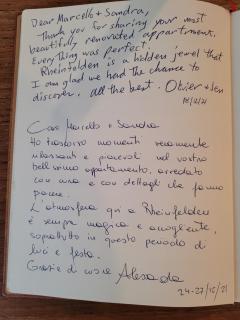 Dear Marcello + Sandra,
Thank you for sharing your most
beautifully renovated appartment.
Everything was perfect.
Rheinfelden is a hidden jewel that
I am glad we had the chance to
discover. All the best. Olivier + Jen
Caro Marcello e Sandra
Ho trascorso momenti veramente
rilassanti e piacevoli nel vostro
bellissimo appartamento, arredato
con cura e con dettagli che fanno
L'atmosfera qui a Rheinfelden
è sempre magica e accogliente,
soprattutto in questo periodo di
luci e festa.
Grazie di cuore
24-27/12/21